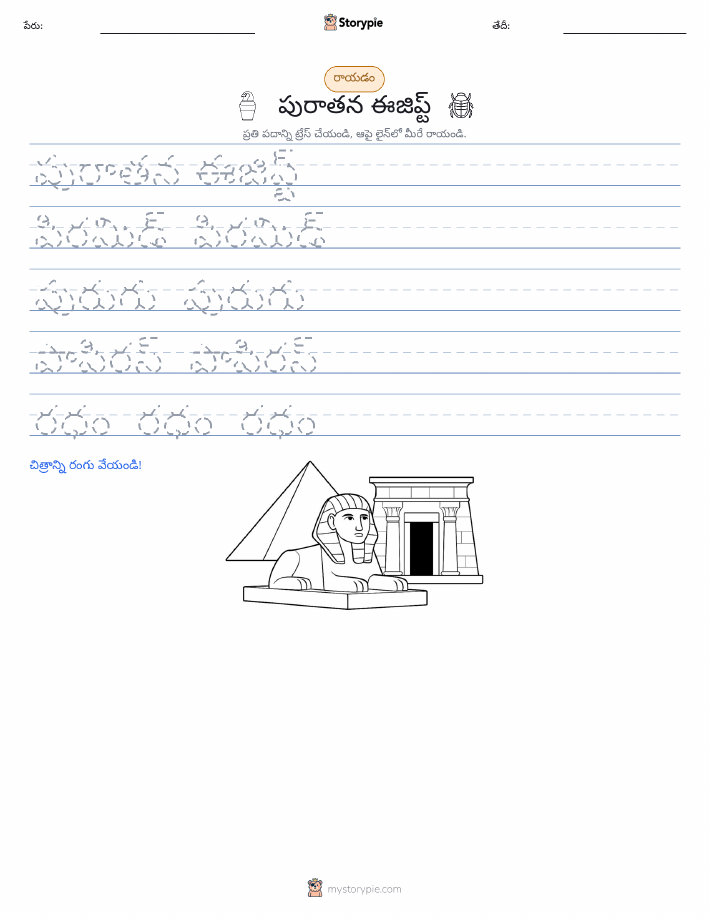 పేరు:
Storypie
తేదీ:
రాయడం
పురాతన ఈజిప్ట్
ప్రతి పదాన్ని ట్రేస్ చేయండి, ఆపై లైన్‌లో మీరే రాయండి.
పురాతన ఈజిప్ట్
పిరమిడ్ పిరమిడ్
పురుగు పురుగు
పాపిరస్ పాపిరస్
రథం రథం రథం
చిత్రాన్ని రంగు వేయండి!
mystorypie.com